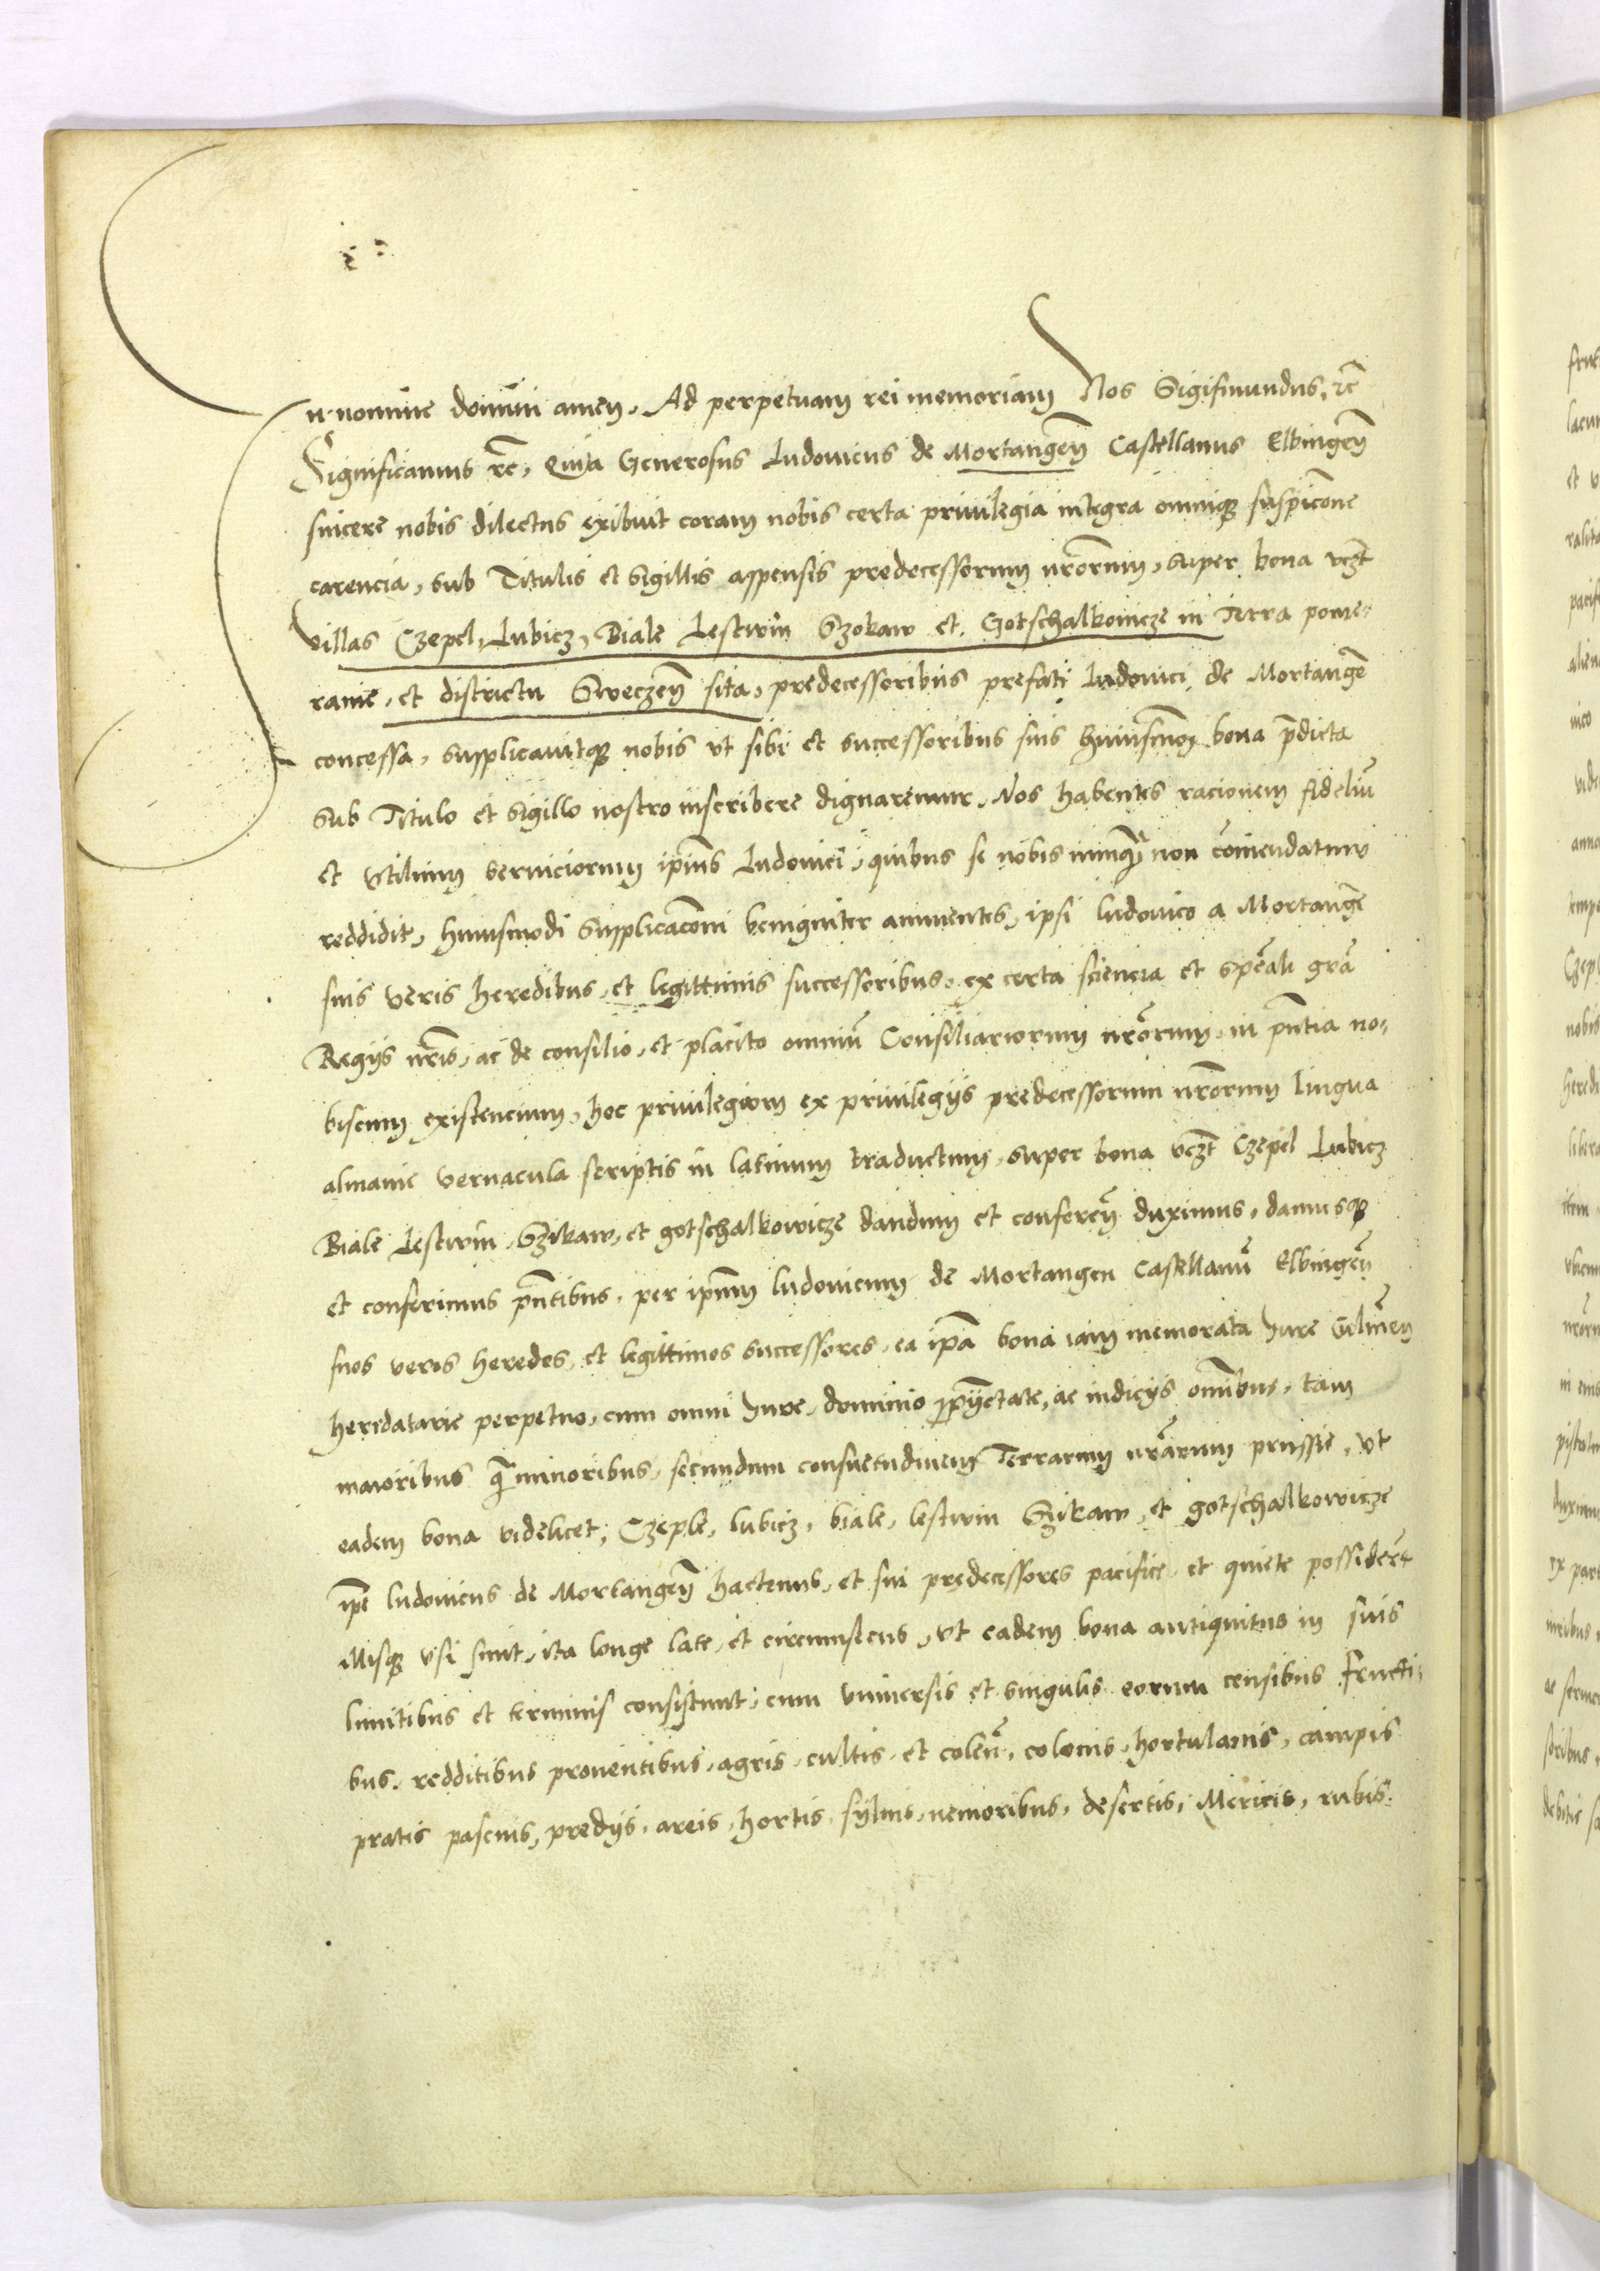 In nomine domini amen, Ad perpetuam rei memoriam Nos Sigismundus, rc̃
Significamus rc̃, Quia Generosus Ludovicus de Mortangeñ Castellanus Elbingeñ
sincere nobis dilectus exibuit coram nobis certa privilegia integra omniq; suspicõne
carencia, sub Titulis et Sigillis appensis predecessorum nrõrum, super bona vcz̃t
villas Czepel, Lubicz, Biale Lestwin Szokaw et Gotschalkowicze in Terra pome-
ranie, et districtu Sweczeñ sita, predecessoribus prefati Ludovici de Mortangẽ
concessa, supplicavitq; nobis vt sibi et successoribus suis huiusmõi bona p̃dicta
sub Titulo et Sigillo nostro inscribere dignaremur, Nos habentes racionem fideliũ
et vtilium serviciorum ip̃ius Ludovici, quibus se nobis nunq̃ non cõmendatum
reddidit, huiusmodi supplicacõni benigniter annuentes, ipsi ludovico a Mortangẽ
suis veris heredibus, et legittimis successoribus, ex certa sciencia et spẽali grã
Regijs nr̃is, ac de consilio, et placito omniũ Consiliariorum nrõrum, in p̃ntia no-
biscum existencium, hoc privilegium ex privilegijs predecessorum nrõrum lingua
almanie vernacula scriptis in latinum traductum, super bona vcz̃t Czepel Lubicz
Biale Lestwin, Szikaw, et gotschalkowicze dandum et confereñ duximus, damusq;
et conferimus p̃ntibus, per ip̃um ludovicum de Mortangen Castellanũ Elbingeñ
suos veros heredes, et legittimos successores, ea ip̃a bona iam memorata Jure Culmeñ
heredatarie perpetuo, cum omni Jure, dominio p̃prietate, ac iudicijs om̃ibus, tam
maioribus q̃ minoribus, secundum consuetudinem Terrarum nrãrum prussie, vt
eadem bona videlicet, Czeple, lubicz, biale, lestwin Szikaw, et gotschalkowicze
ip̃e ludovicus de Mortangeñ hactenus, et sui predecessores pacifice, et quiete possider̃t
illisq; vsi sunt, ita longe late, et circumsecus, vt eadem bona antiquitus in suis
limitibus et terminis consistunt, cum vniversis et singulis eorum censibus fructi-
bus, redditibus proventibus, agris, cultis, et coleñ, colonis, hortulanis, campis
pratis pascuis, predijs, areis, hortis, sylvis, nemoribus, desertis, Mericis, rubis